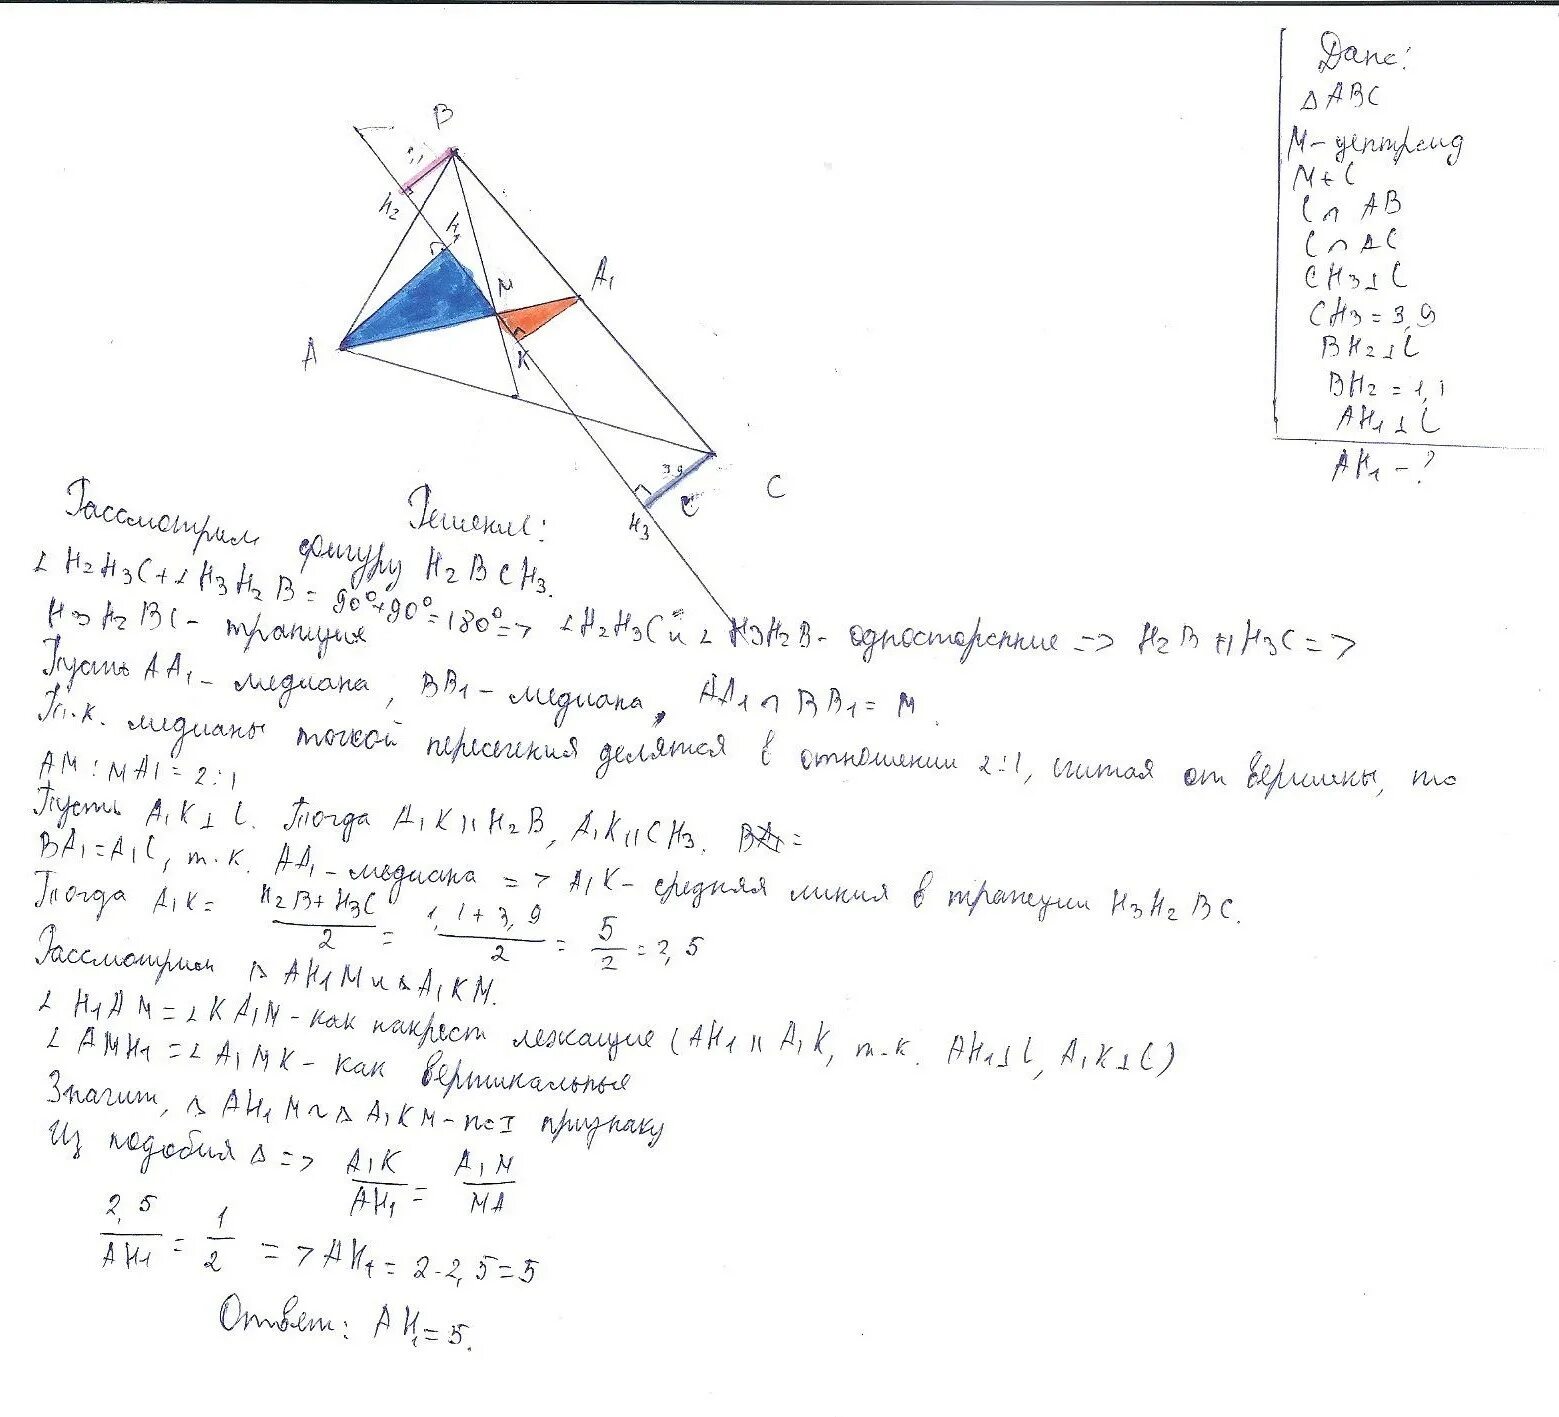 Дано:
△ ABC
M - центроид
M ∈ l
l ∩ AB
l ∩ AC
CH₃ ⊥ l
CH₃ = 3,9
BH₂ ⊥ l
BH₂ = 1,1
AH₁ ⊥ l
AH₁ - ?
B
1,1
H₂
H₁
M
A₁
A
K
3,9
C
H₃
Решение:
Рассмотрим фигуру H₂BCH₃.
∠ H₂H₃C + ∠ H₃H₂B = 90° + 90° = 180° => ∠H₂H₃C и ∠ H₃H₂B - односторонние => H₂B || H₃C =>
H₃H₂BC - трапеция
Пусть AA₁ - медиана, BB₁ - медиана, AA₁ ∩ BB₁ = M.
Т.к. медианы точкой пересечения делятся в отношении 2:1, считая от вершины, то
AM : MA₁ = 2:1
Пусть A₁K ⊥ l. Тогда A₁K || H₂B, A₁K || CH₃. BA₁ =
BA₁ = A₁C, т.к. AA₁ - медиана => A₁K - средняя линия в трапеции H₃H₂BC.
Тогда A₁K = (H₂B + H₃C)/2 = (1,1 + 3,9)/2 = 5/2 = 2,5
Рассмотрим △ AH₁M и △ A₁KM.
∠ H₁AM = ∠ KA₁M - как накрест лежащие (AH₁ || A₁K, т.к. AH₁ ⊥ l, A₁K ⊥ l)
∠ AMH₁ = ∠ A₁MK - как вертикальные
Значит, △ AH₁M ~ △ A₁KM - по I признаку
Из подобия △ => A₁K/AH₁ = A₁M/MA
2,5/AH₁ = 1/2 => AH₁ = 2·2,5 = 5
Ответ: AH₁ = 5.